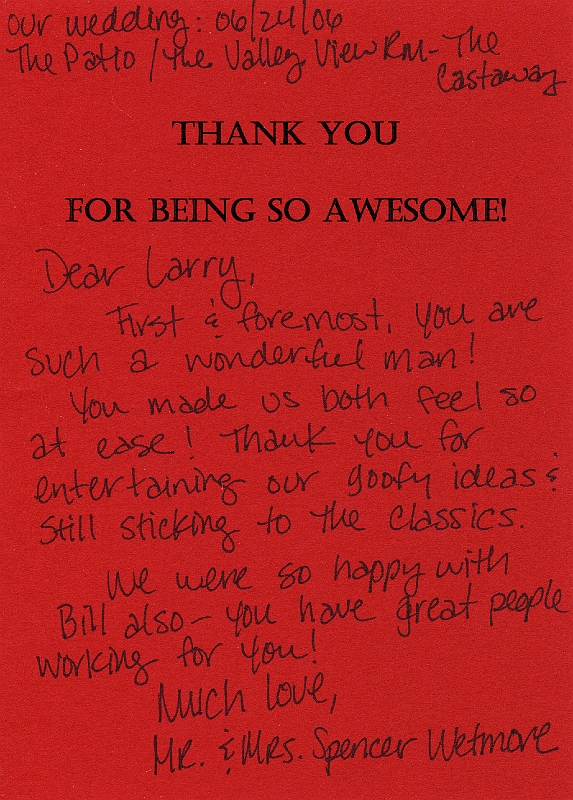 our wedding: 06/24/06
The Patio / The Valley View Rm - The
Castaway
THANK YOU
FOR BEING SO AWESOME!
Dear Larry,
First & foremost, you are
such a wonderful man!
You made us both feel so
at ease! Thank you for
entertaining our goofy ideas &
still sticking to the classics.
We were so happy with
Bill also - you have great people
working for you!
Much love,
Mr. & Mrs. Spencer Wetmore